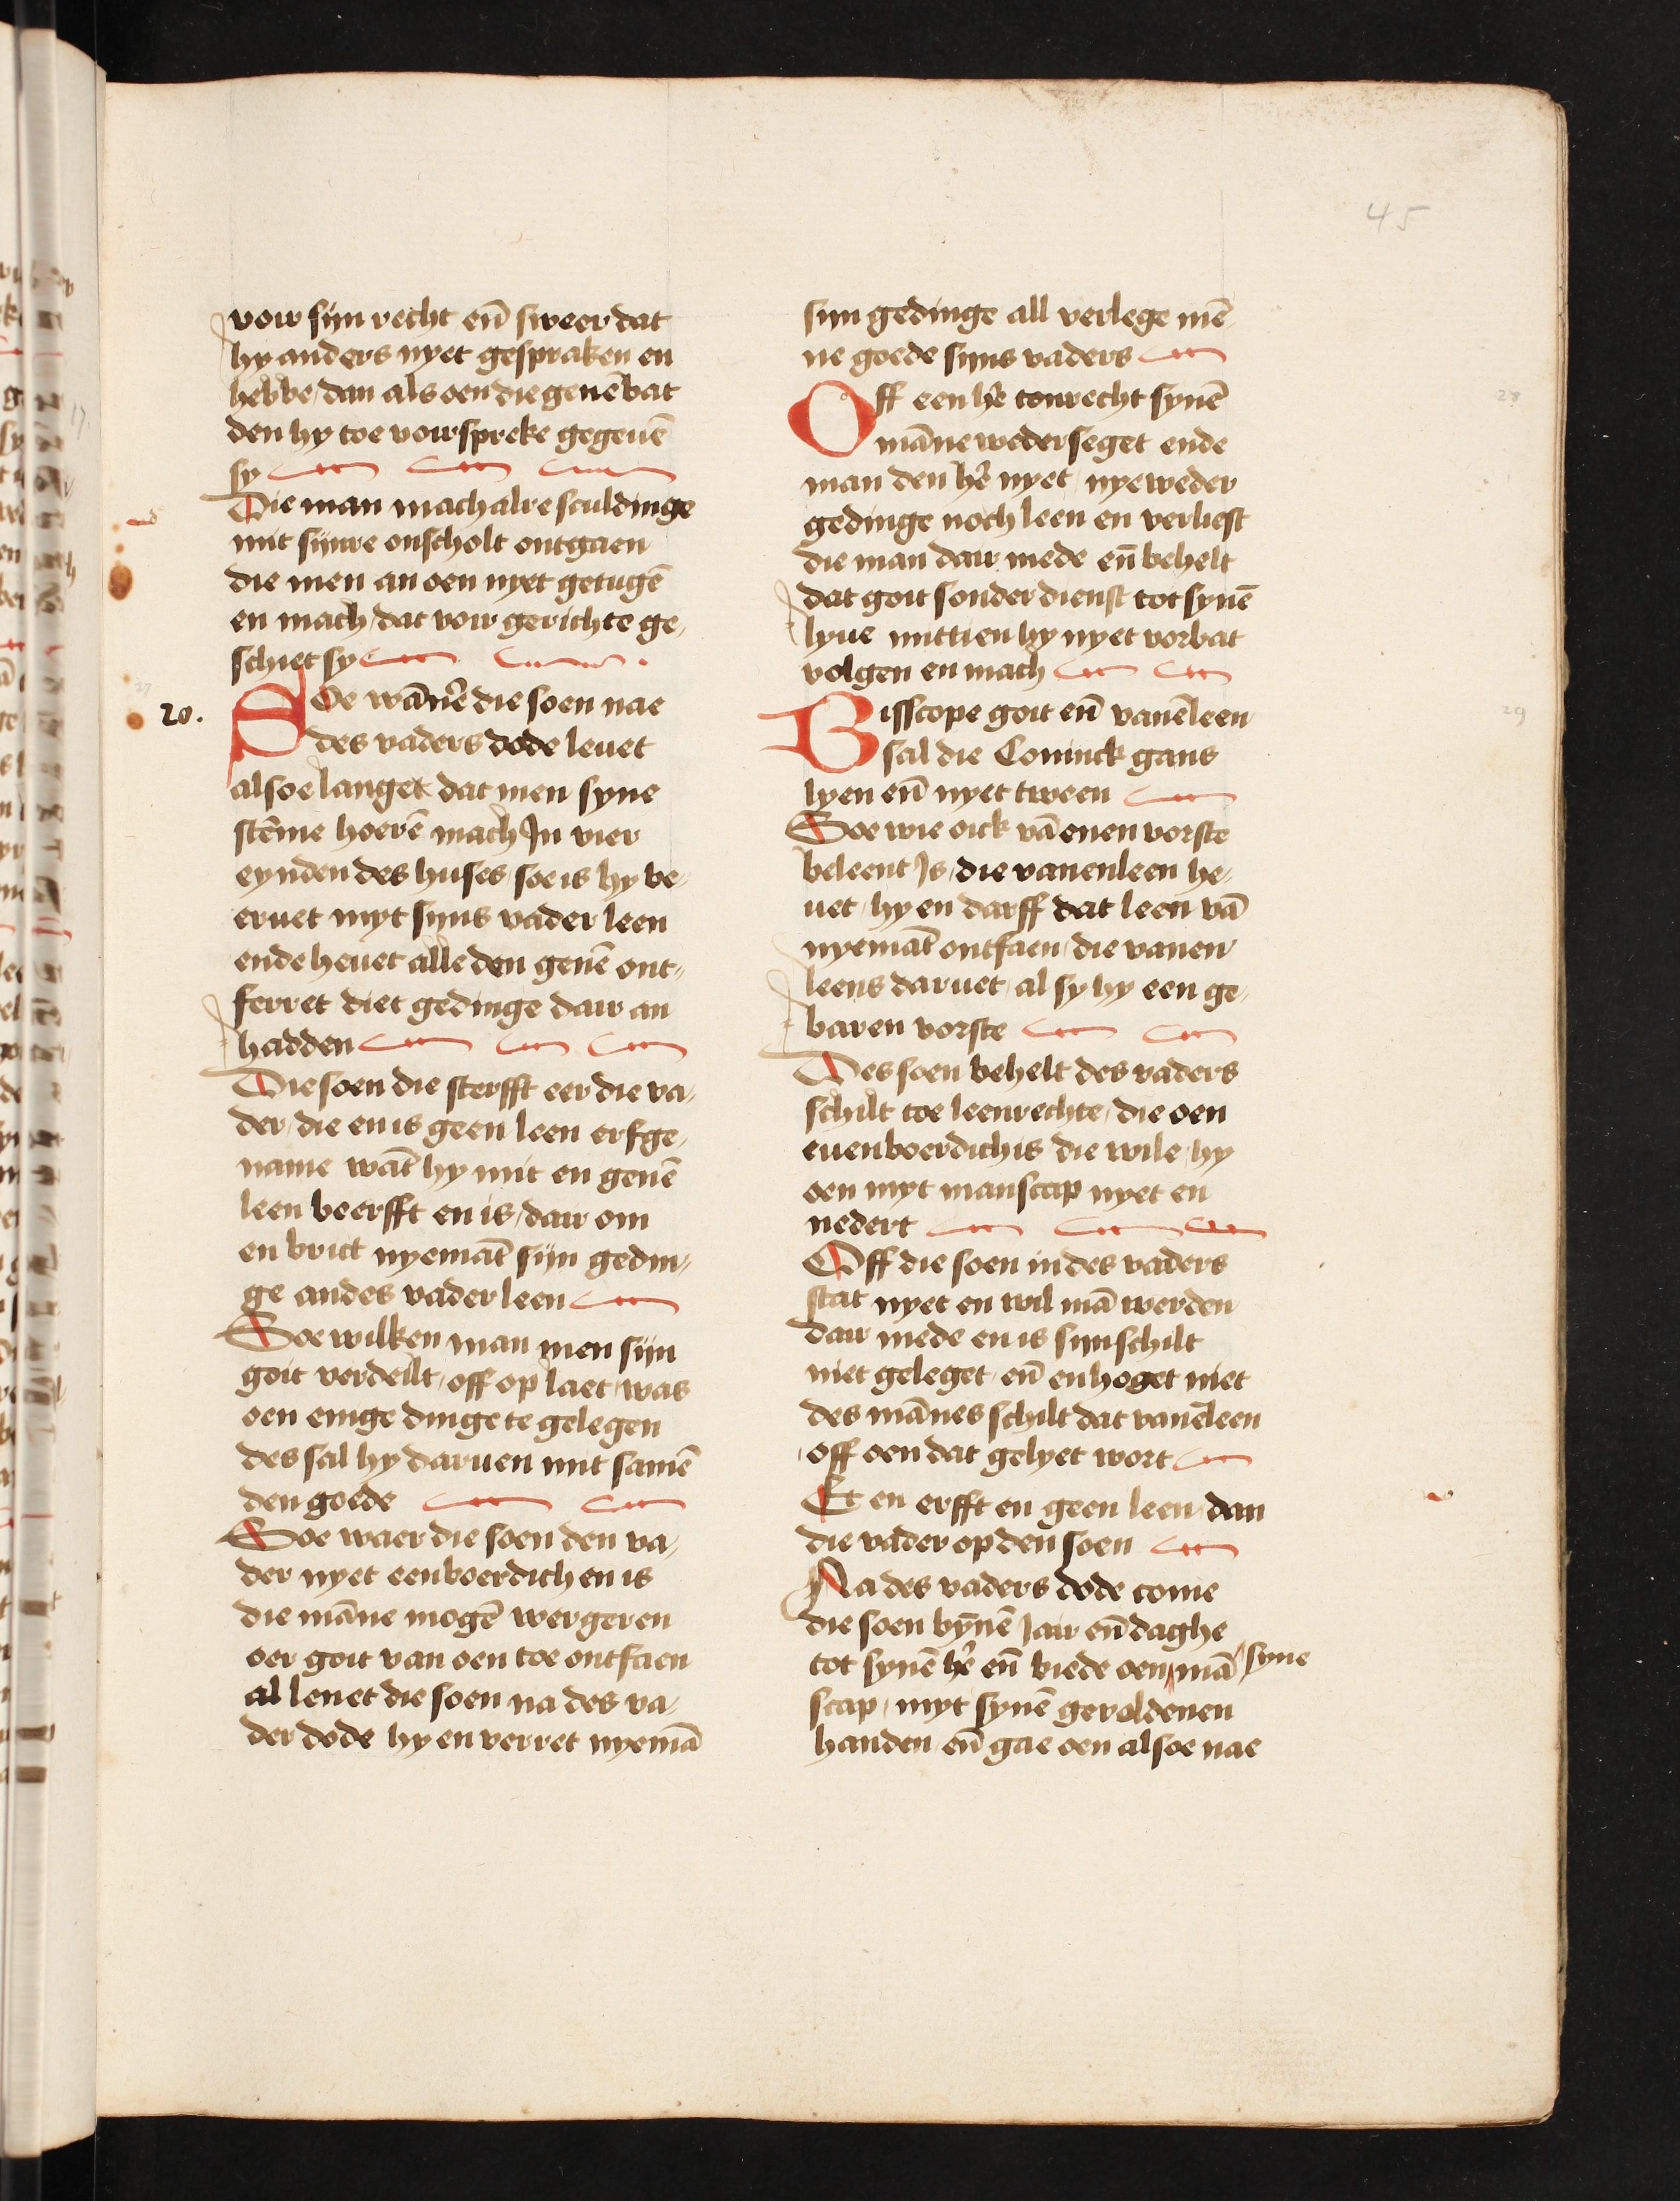 45
voir sijn recht en̄ sweer dat
hy anders nyet gespraken en
hebbe / dan als oen die genē bat
den hy toe voirspreke gegeuē
sy
Die man mach alre sculdinge
mit sijnre onscholt ontgaen
die men an oen nyet getugē
en mach / dat voir gerichte ge-
schiet sy
27
20.
Soe wān̄e die soen nae
des vaders dode leuet
alsoe langet dat men syne
stēme hoerē mach Jn vier
eynden des huses / soe is hy be-
eruet myt sijns vader leen
ende heuet alle den genē ont-
ferret diet gedinge dair an
hadden
Die soen die sterfft eer die va-
der / die en is geen leen erfge-
name wāt hy mit en genē
leen beerfft en is / dair om
en brict nyemāt sijn gedin-
ge an des vader leen
Soe wilken man men sijn
goit verdeilt / off op laet / was
oen enige dinge te gelegen
des sal hy daruen mit samē
den goede
Soe waer die soen den va-
der nyet eenboerdich en is
die māne mogē wergeren
oer goit van oen toe ontfaen
al leuet die soen na des va-
der dode hy en verret nyemā
sijn gedinge all verlege mē
ne goede sijns vaders
28
Off een hē tonrecht synē
māne wederseget ende
man den hē nyet / nyeweder
gedinge noch leen en verliest
die man dair mede en̄ behelt
dat goit sonder dienst tot synē
lyue mittien hy nyet vorbat
volgen en mach
29
Bisscope goit en̄ vanēleen
sal die Coninck gans
lyen en̄ nyet tween
Soe wie oick vā enen vorste
beleent Js / die vanenleen he-
uet / hy en darff dat leen vā
nyemāt ontfaen / die vanen
leens daruet / al sy hy een ge-
baren vorste
Des soen behelt des vaders
schilt toe leenrechte / die oen
euenboerdich is die wile / hy
oen myt manscap nyet en
nedert
Off die soen in des vaders
stat nyet en wil mā werden
dair mede en is sijn schilt
niet geleget / en̄ en hoget niet
des mānes schilt dat vanēleen
off oen dat gelyet wort
Et en erfft en geen leen / dan
die vader op den soen
Na des vaders dode come
die soen bȳnē Jair en̄ daghe
tot synē hē en̄ biede oen mā syne
scap / myt synē geuoldenen
handen / en̄ gae oen alsoe nae